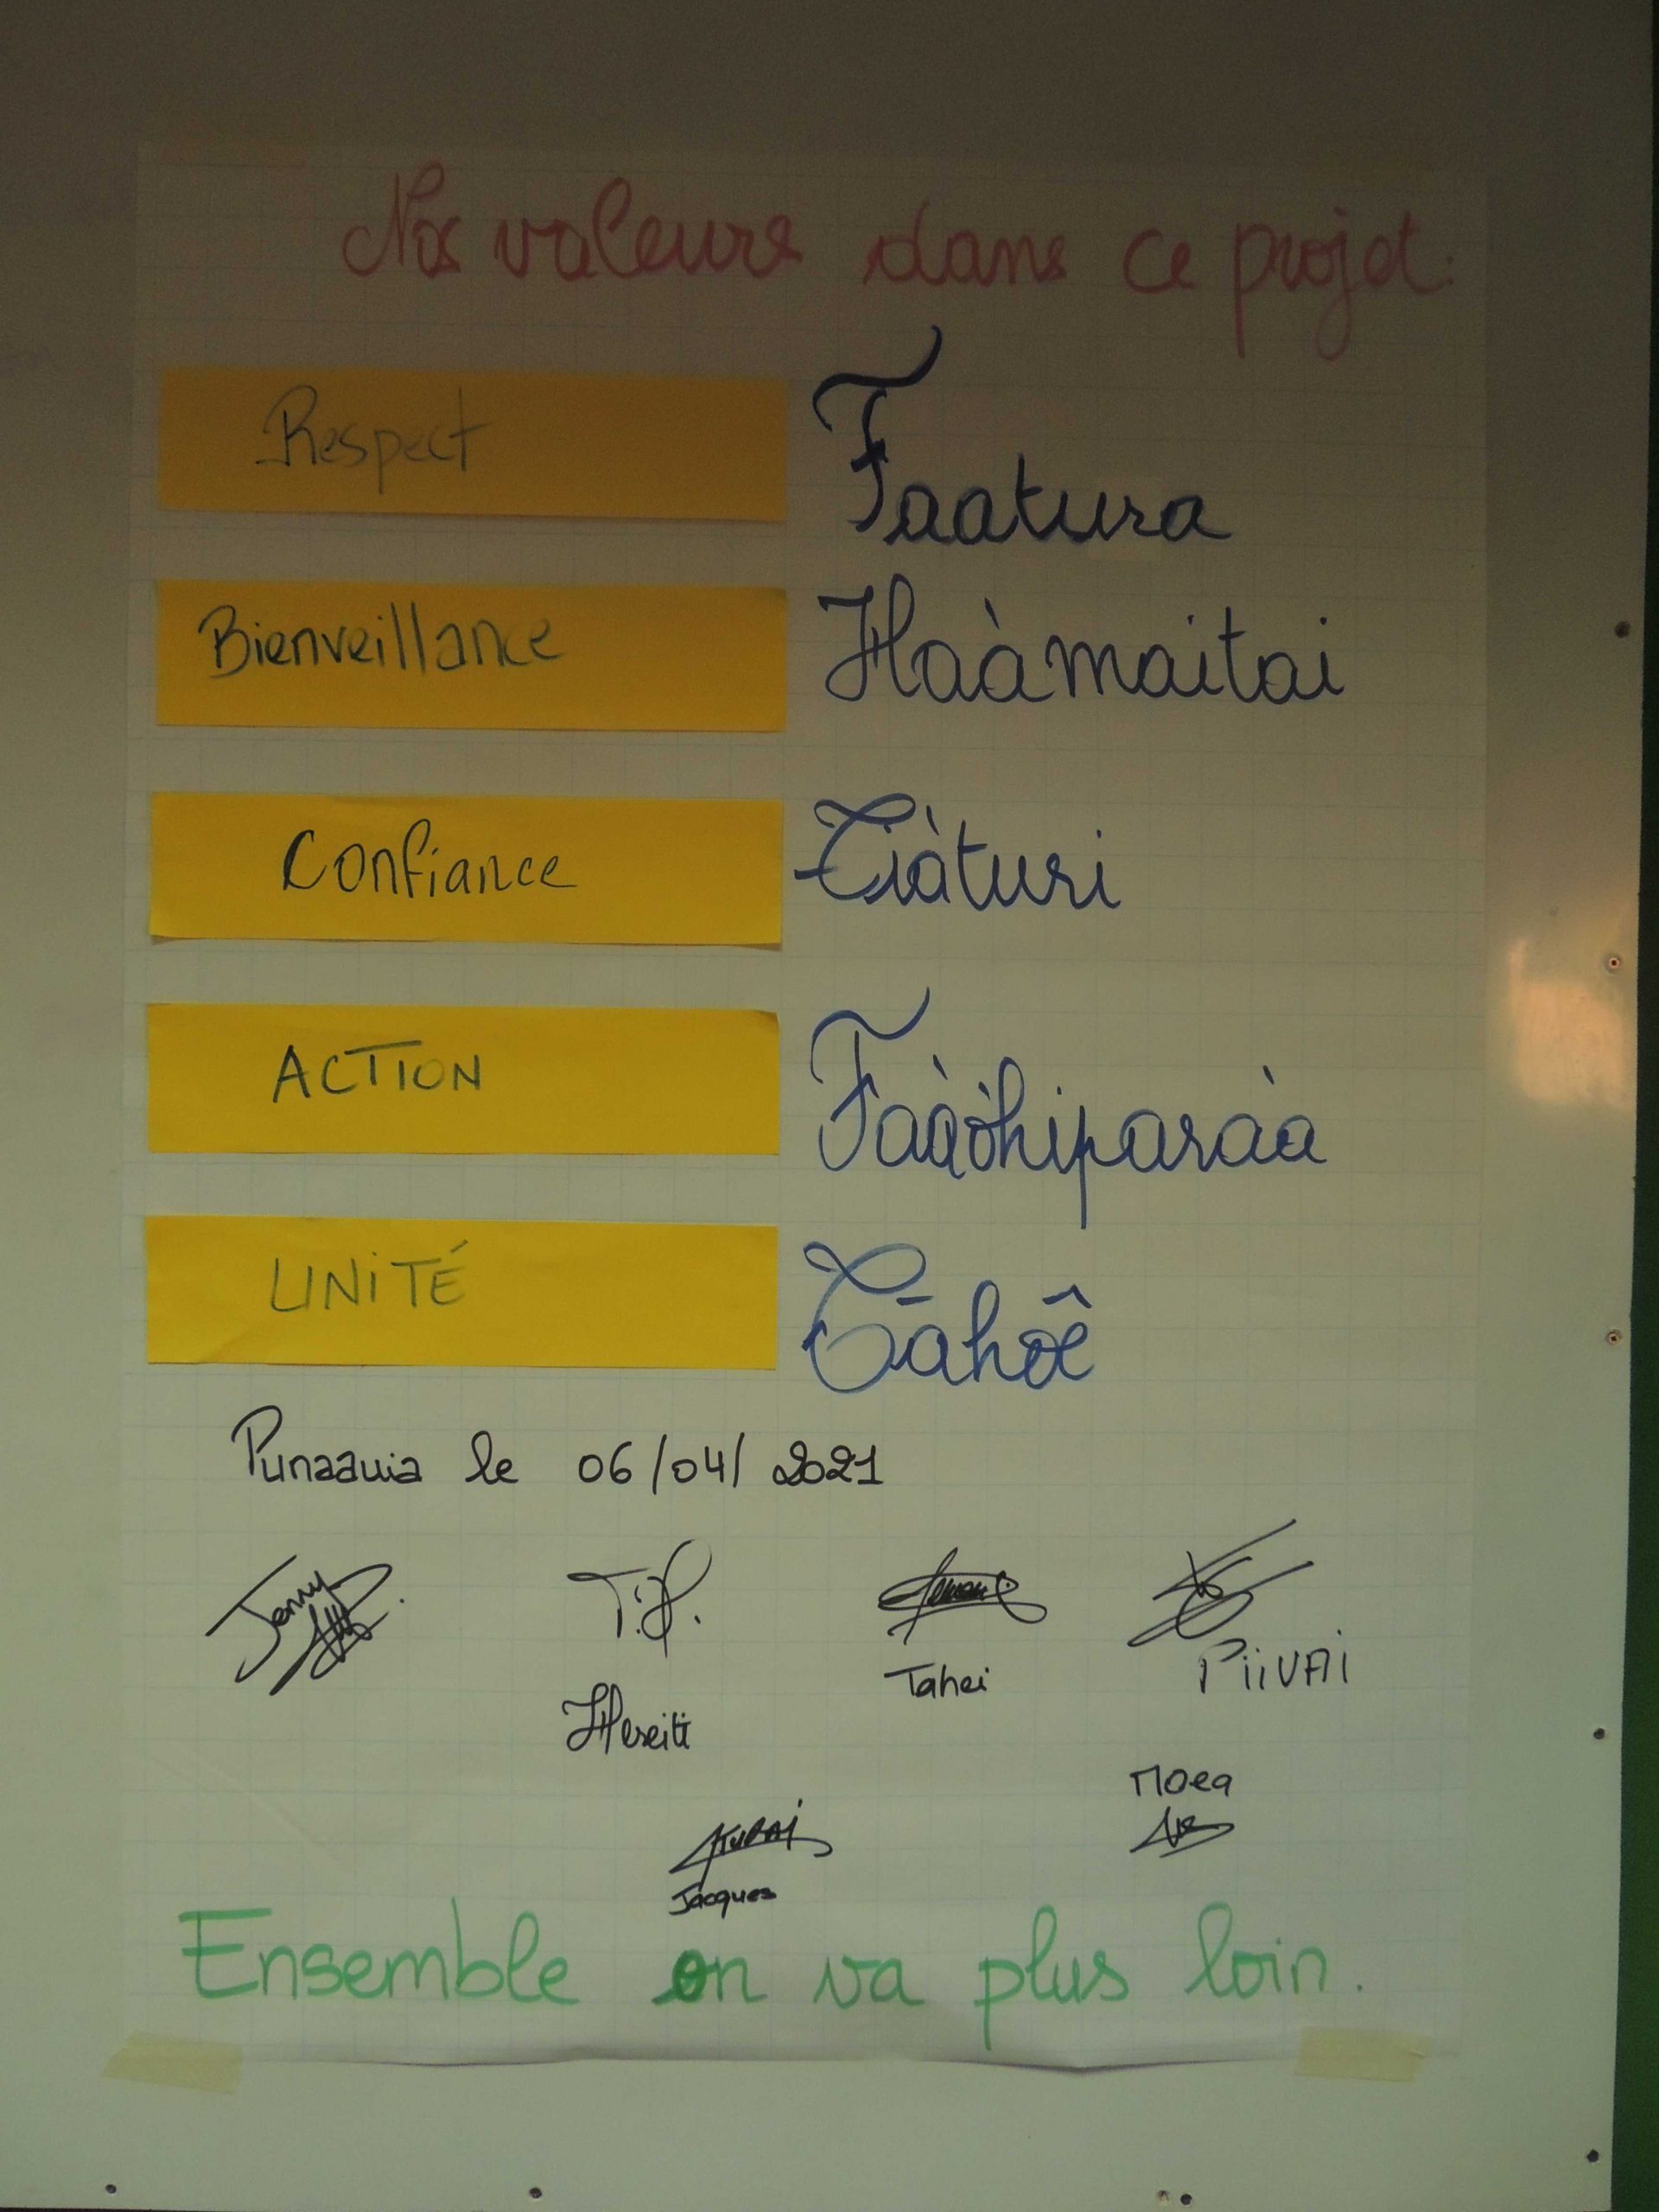 Nos valeurs dans ce projet:
Respect Faatura
Bienveillance Haàmaitai
Confiance Tiàturi
ACTION Faàòhiparaà
UNiTÉ Tāhôê
Punaauia le 06/04/2021
Jenny
T.P.
Tahei
PiiVAi
Hereiti
Moea
Jacques
Ensemble on va plus loin.